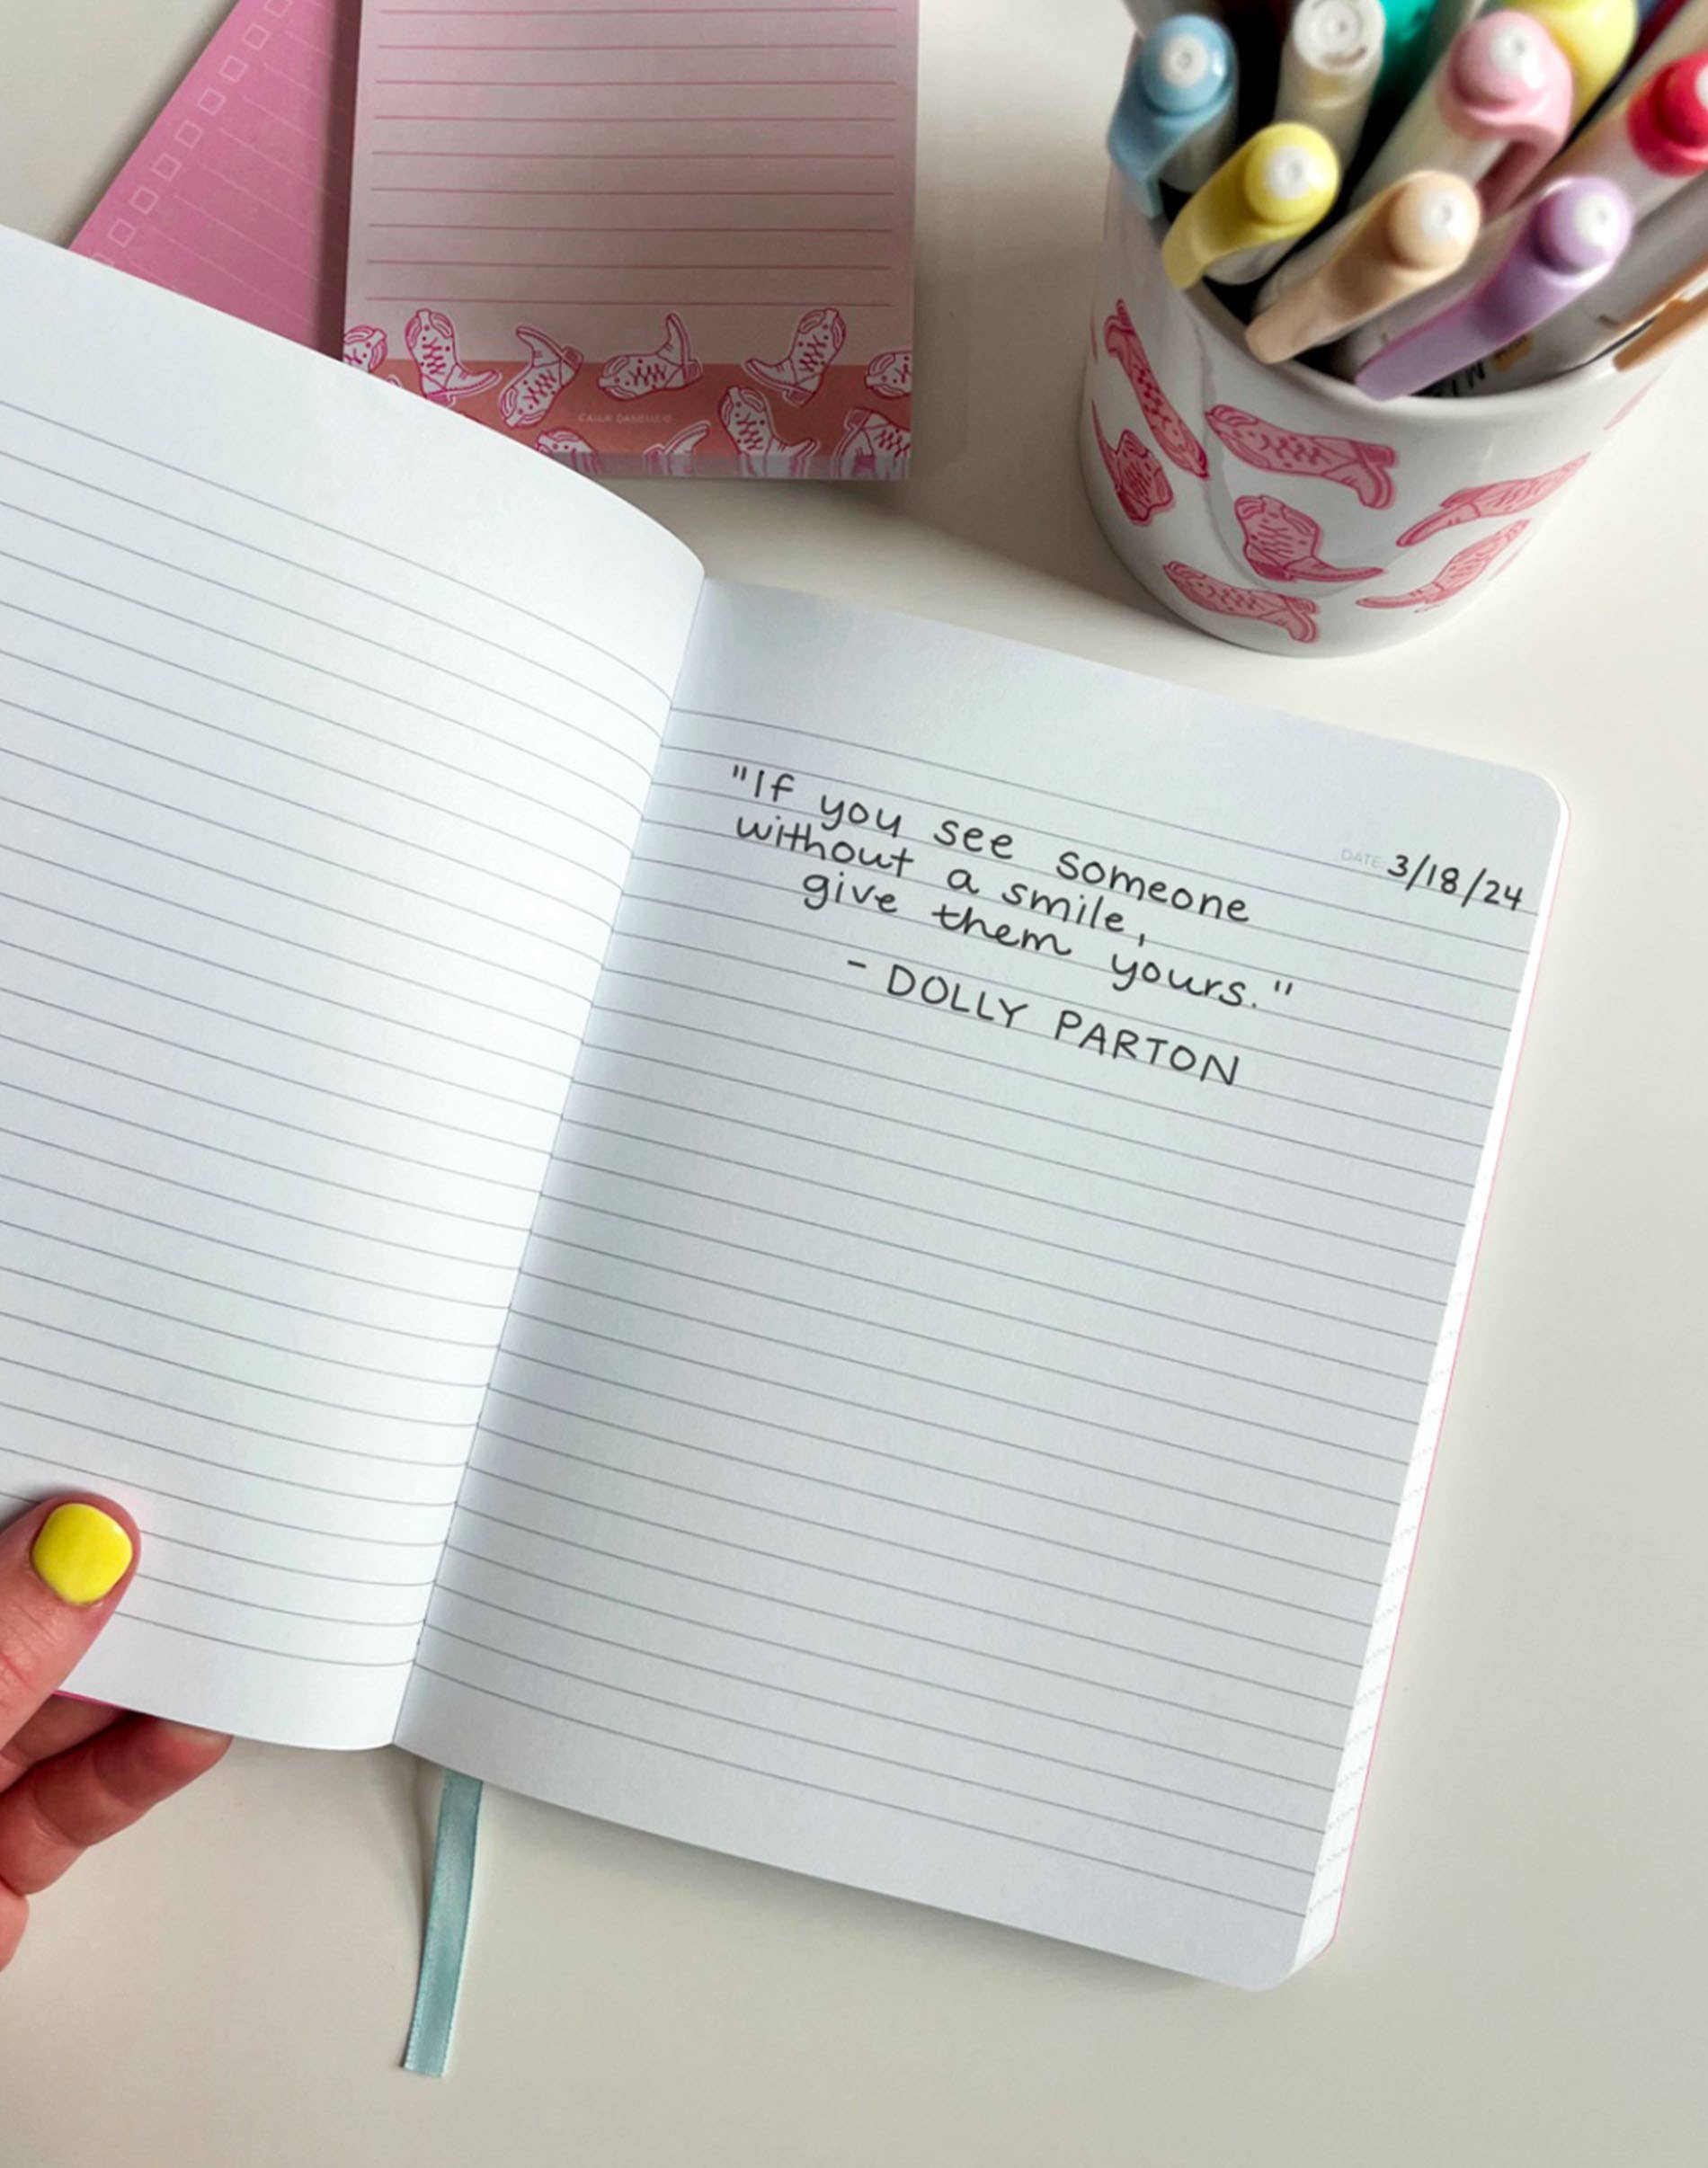 CALLIE DANIELLE
DATE: 3/18/24
"If you see someone
without a smile,
give them yours."
- DOLLY PARTON